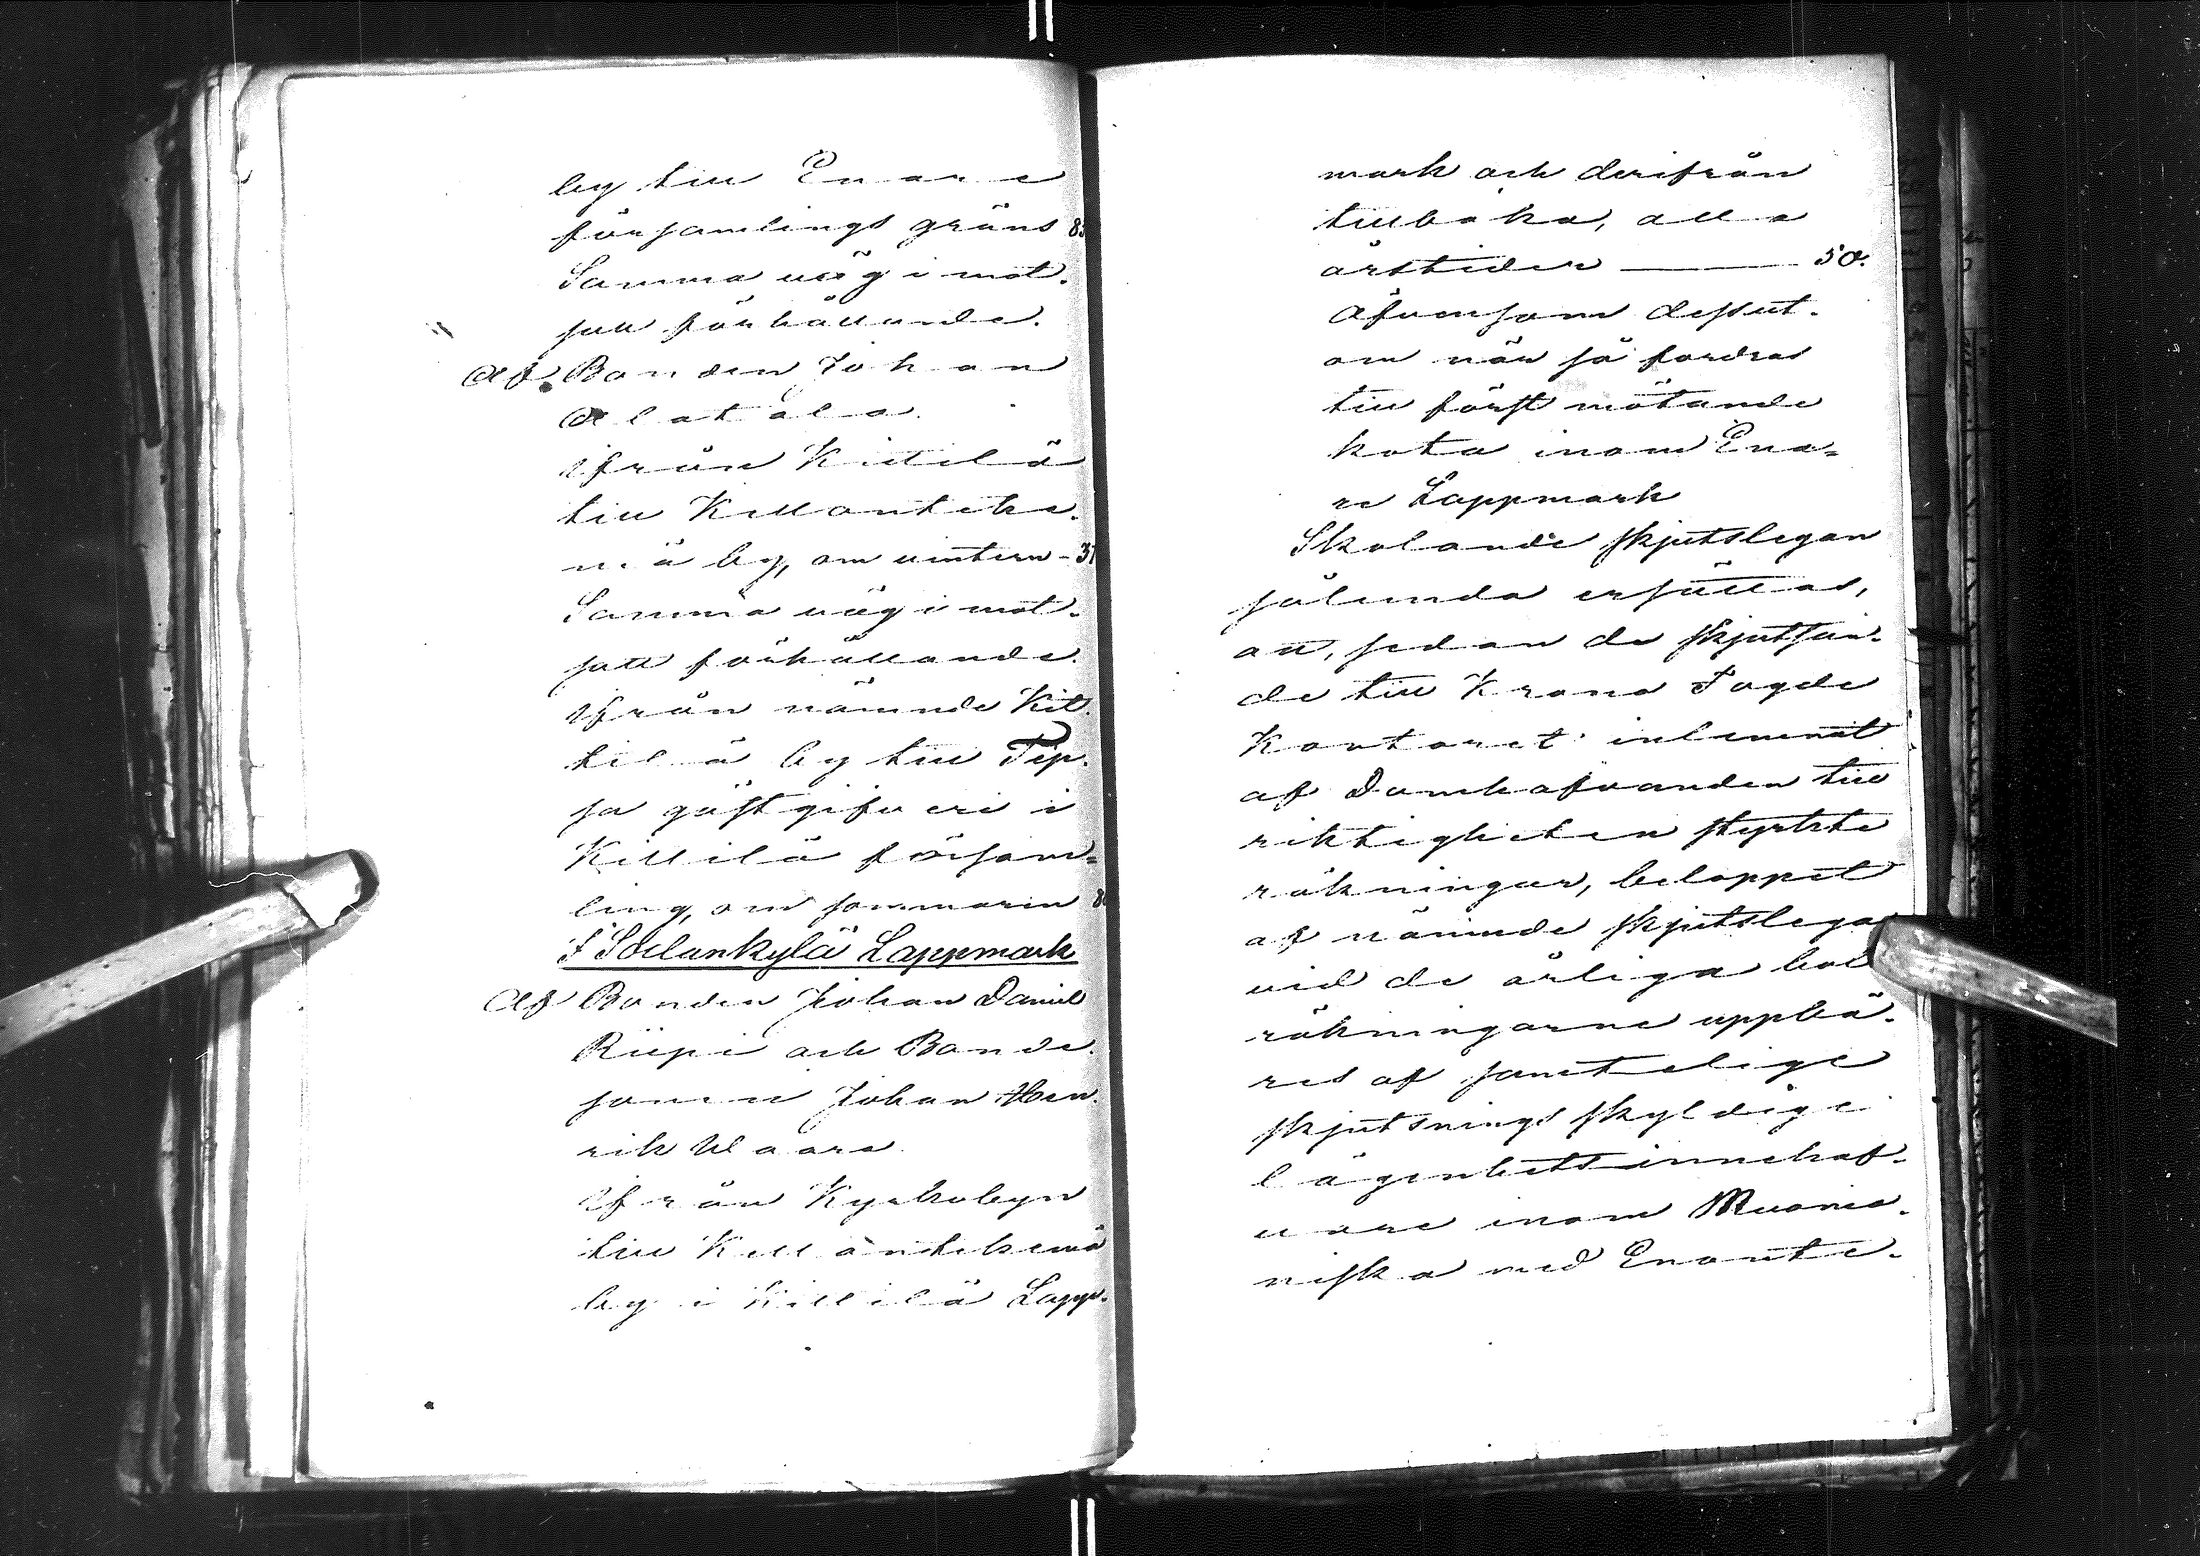 by till Enare
församlings gräns 8
Samma väg i mot-
satt förhållande.
Af Bonden Johan
Alatalo.
ifrån Kittilä
till Killanteke-
niä by, om vintern - 37
Samma väg i mot-
satt förhållande.
ifrån nämnde Kit-
tilä by till Tep-
sa gästgifveri i
Kittilä försam-
ling, om sommaren 8
I Sodankylä Lappmark
Af Bonden Johan Daniel
Riipi och Bonde-
sonen Johan Hen-
rik Waara
ifrån Kyrkobyn
till Killäntekemä
by i Kittilä Lapp-
mark och derifrån
tillbaka, alla
årstider 50.
Äfvensom dessut-
om när så fordras
till först mötande
kota inom Ena-
re Lappmark
Skolande skjutslegan
sålunda ersättas,
att, sedan de skjutsan-
de till Krono Fogde
Kontoret inlemnat
af Domhafvanden till
riktigheten styrkte
räkningar, beloppet
af nämnde skjutslega
vid de årliga
räkningarne uppbä-
res af samtelige
skjutsnings skyldige
lägenhetsinnehaf-
vare inom Muonio-
niska med Enonte-